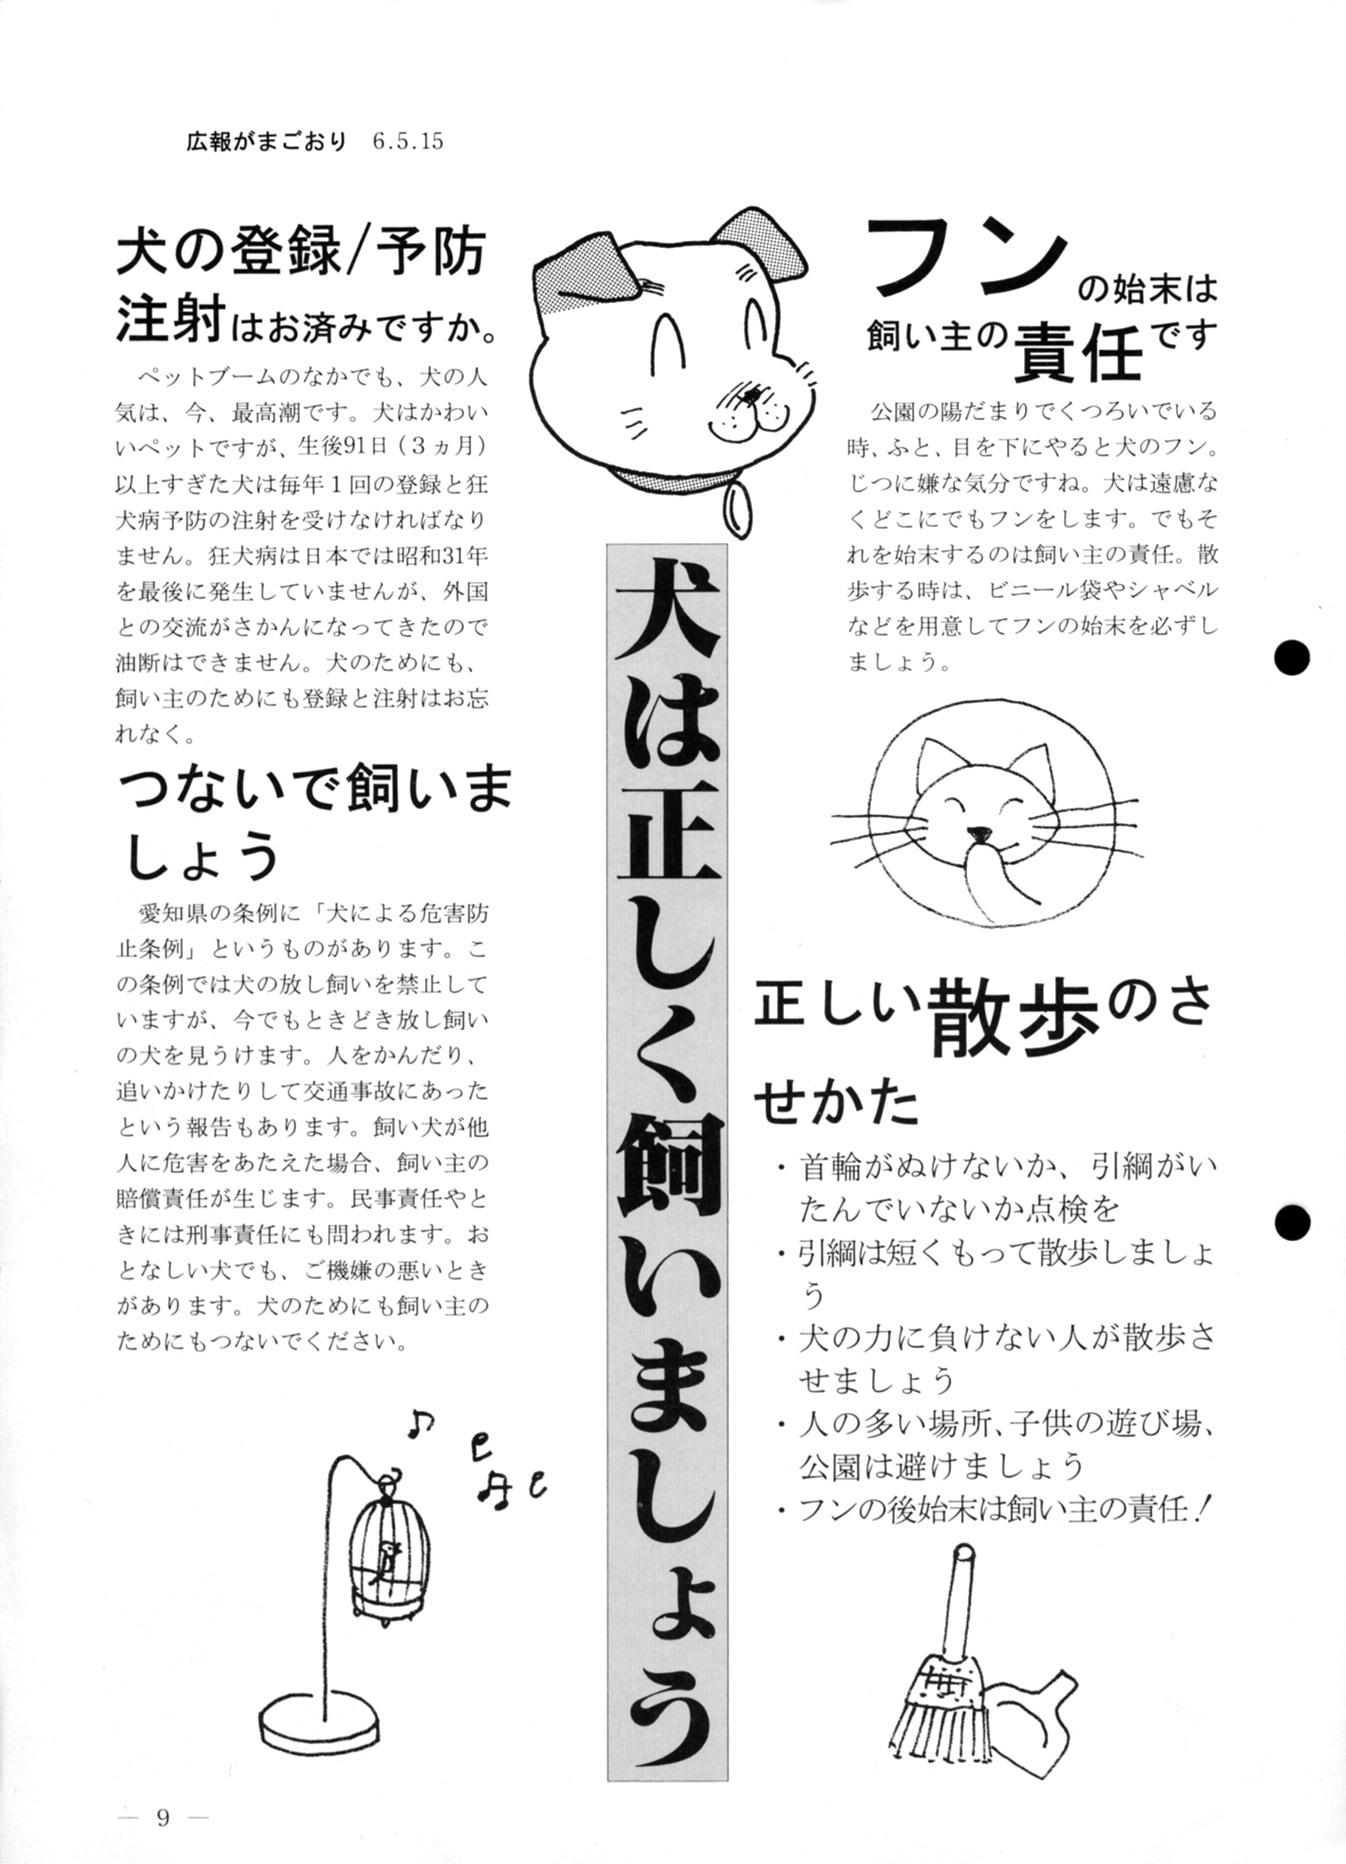 広報がまごおり 6.5.15
犬は正しく飼いましょう
フン
の始末は
飼い主の責任です
公園の陽だまりでくつろいでいる
時、ふと、目を下にやると犬のフン。
じつに嫌な気分ですね。犬は遠慮な
くどこにでもフンをします。でもそ
れを始末するのは飼い主の責任。散
歩する時は、ビニール袋やシャベル
などを用意してフンの始末を必ずし
ましょう。
犬の登録/予防
注射はお済みですか。
ペットブームのなかでも、犬の人
気は、今、最高潮です。犬はかわい
いペットですが、生後91日(3ヵ月)
以上すぎた犬は毎年1回の登録と狂
犬病予防の注射を受けなければなり
ません。狂犬病は日本では昭和31年
を最後に発生していませんが、外国
との交流がさかんになってきたので
油断はできません。犬のためにも、
飼い主のためにも登録と注射はお忘
れなく。
つないで飼いま
しょう
愛知県の条例に「犬による危害防
止条例」というものがあります。こ
の条例では犬の放し飼いを禁止して
いますが、今でもときどき放し飼い
の犬を見うけます。人をかんだり、
追いかけたりして交通事故にあった
という報告もあります。飼い犬が他
人に危害をあたえた場合、飼い主の
賠償責任が生じます。民事責任やと
きには刑事責任にも問われます。お
となしい犬でも、ご機嫌の悪いとき
があります。犬のためにも飼い主の
ためにもつないでください。
正しい散歩のさ
せかた
・首輪がぬけないか、引綱がい
たんでいないか点検を
・引綱は短くもって散歩しましょ
う
・犬の力に負けない人が散歩さ
せましょう
・人の多い場所、子供の遊び場、
公園は避けましょう
・フンの後始末は飼い主の責任!
— 9 —